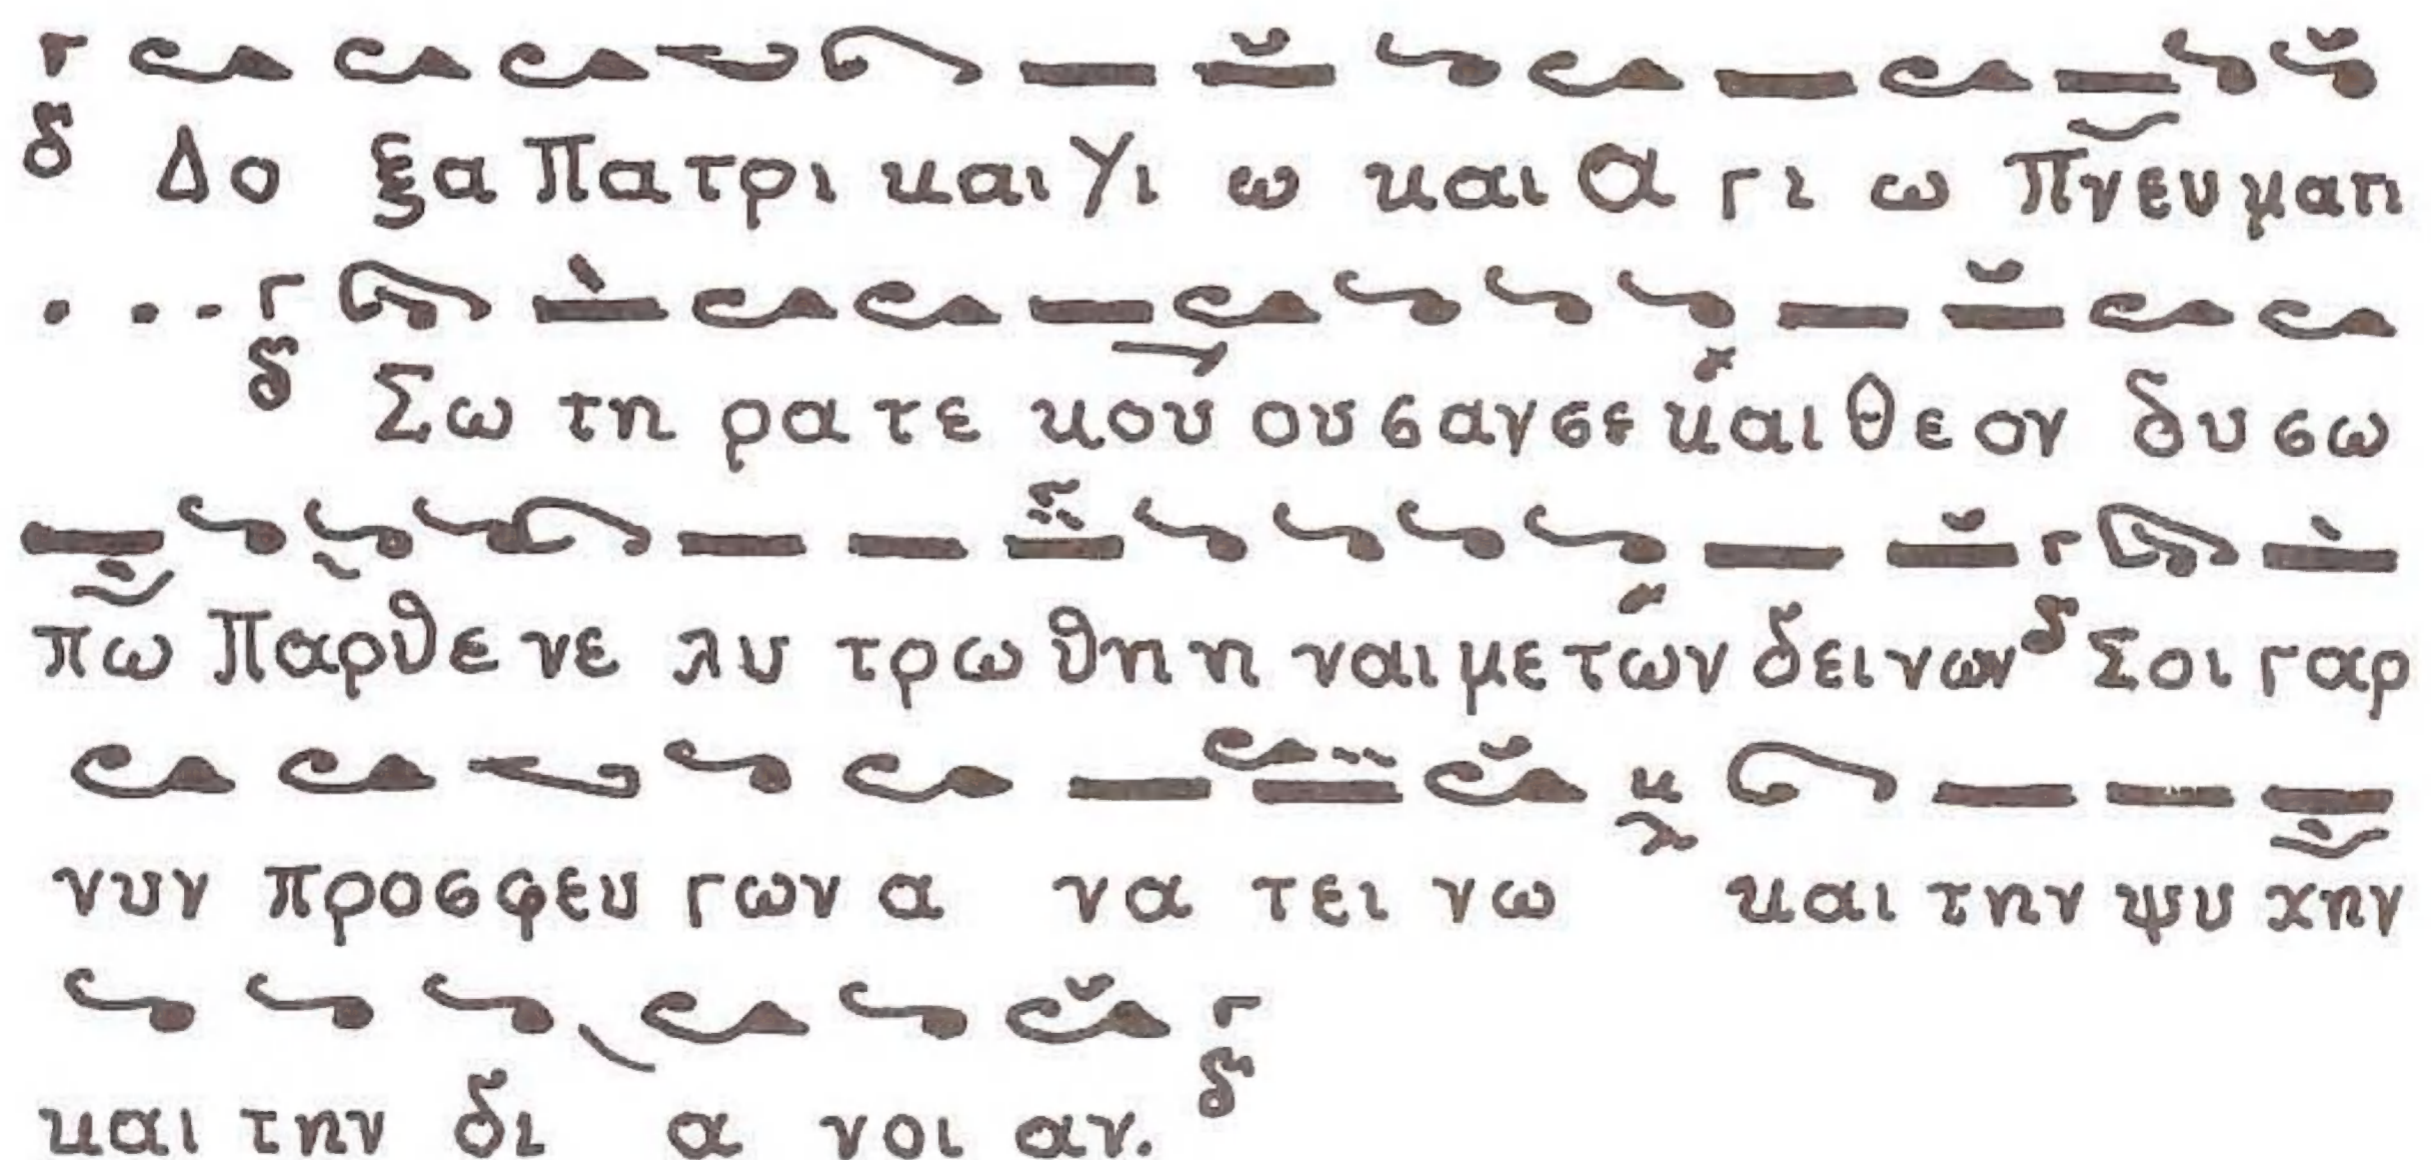 Δο ξα Πα τρι και Υι ω και Α γι ω Πνευ μα τι
Σω τη ρα τε κου ου σαν σε και Θε ον δυ σω
πω Παρ θε νε λυ τρω θη η ναι με των δει νων Σοι γαρ
νυν προσ φευ γων α να τει νω και την ψυ χην
και την δι α νοι αν.